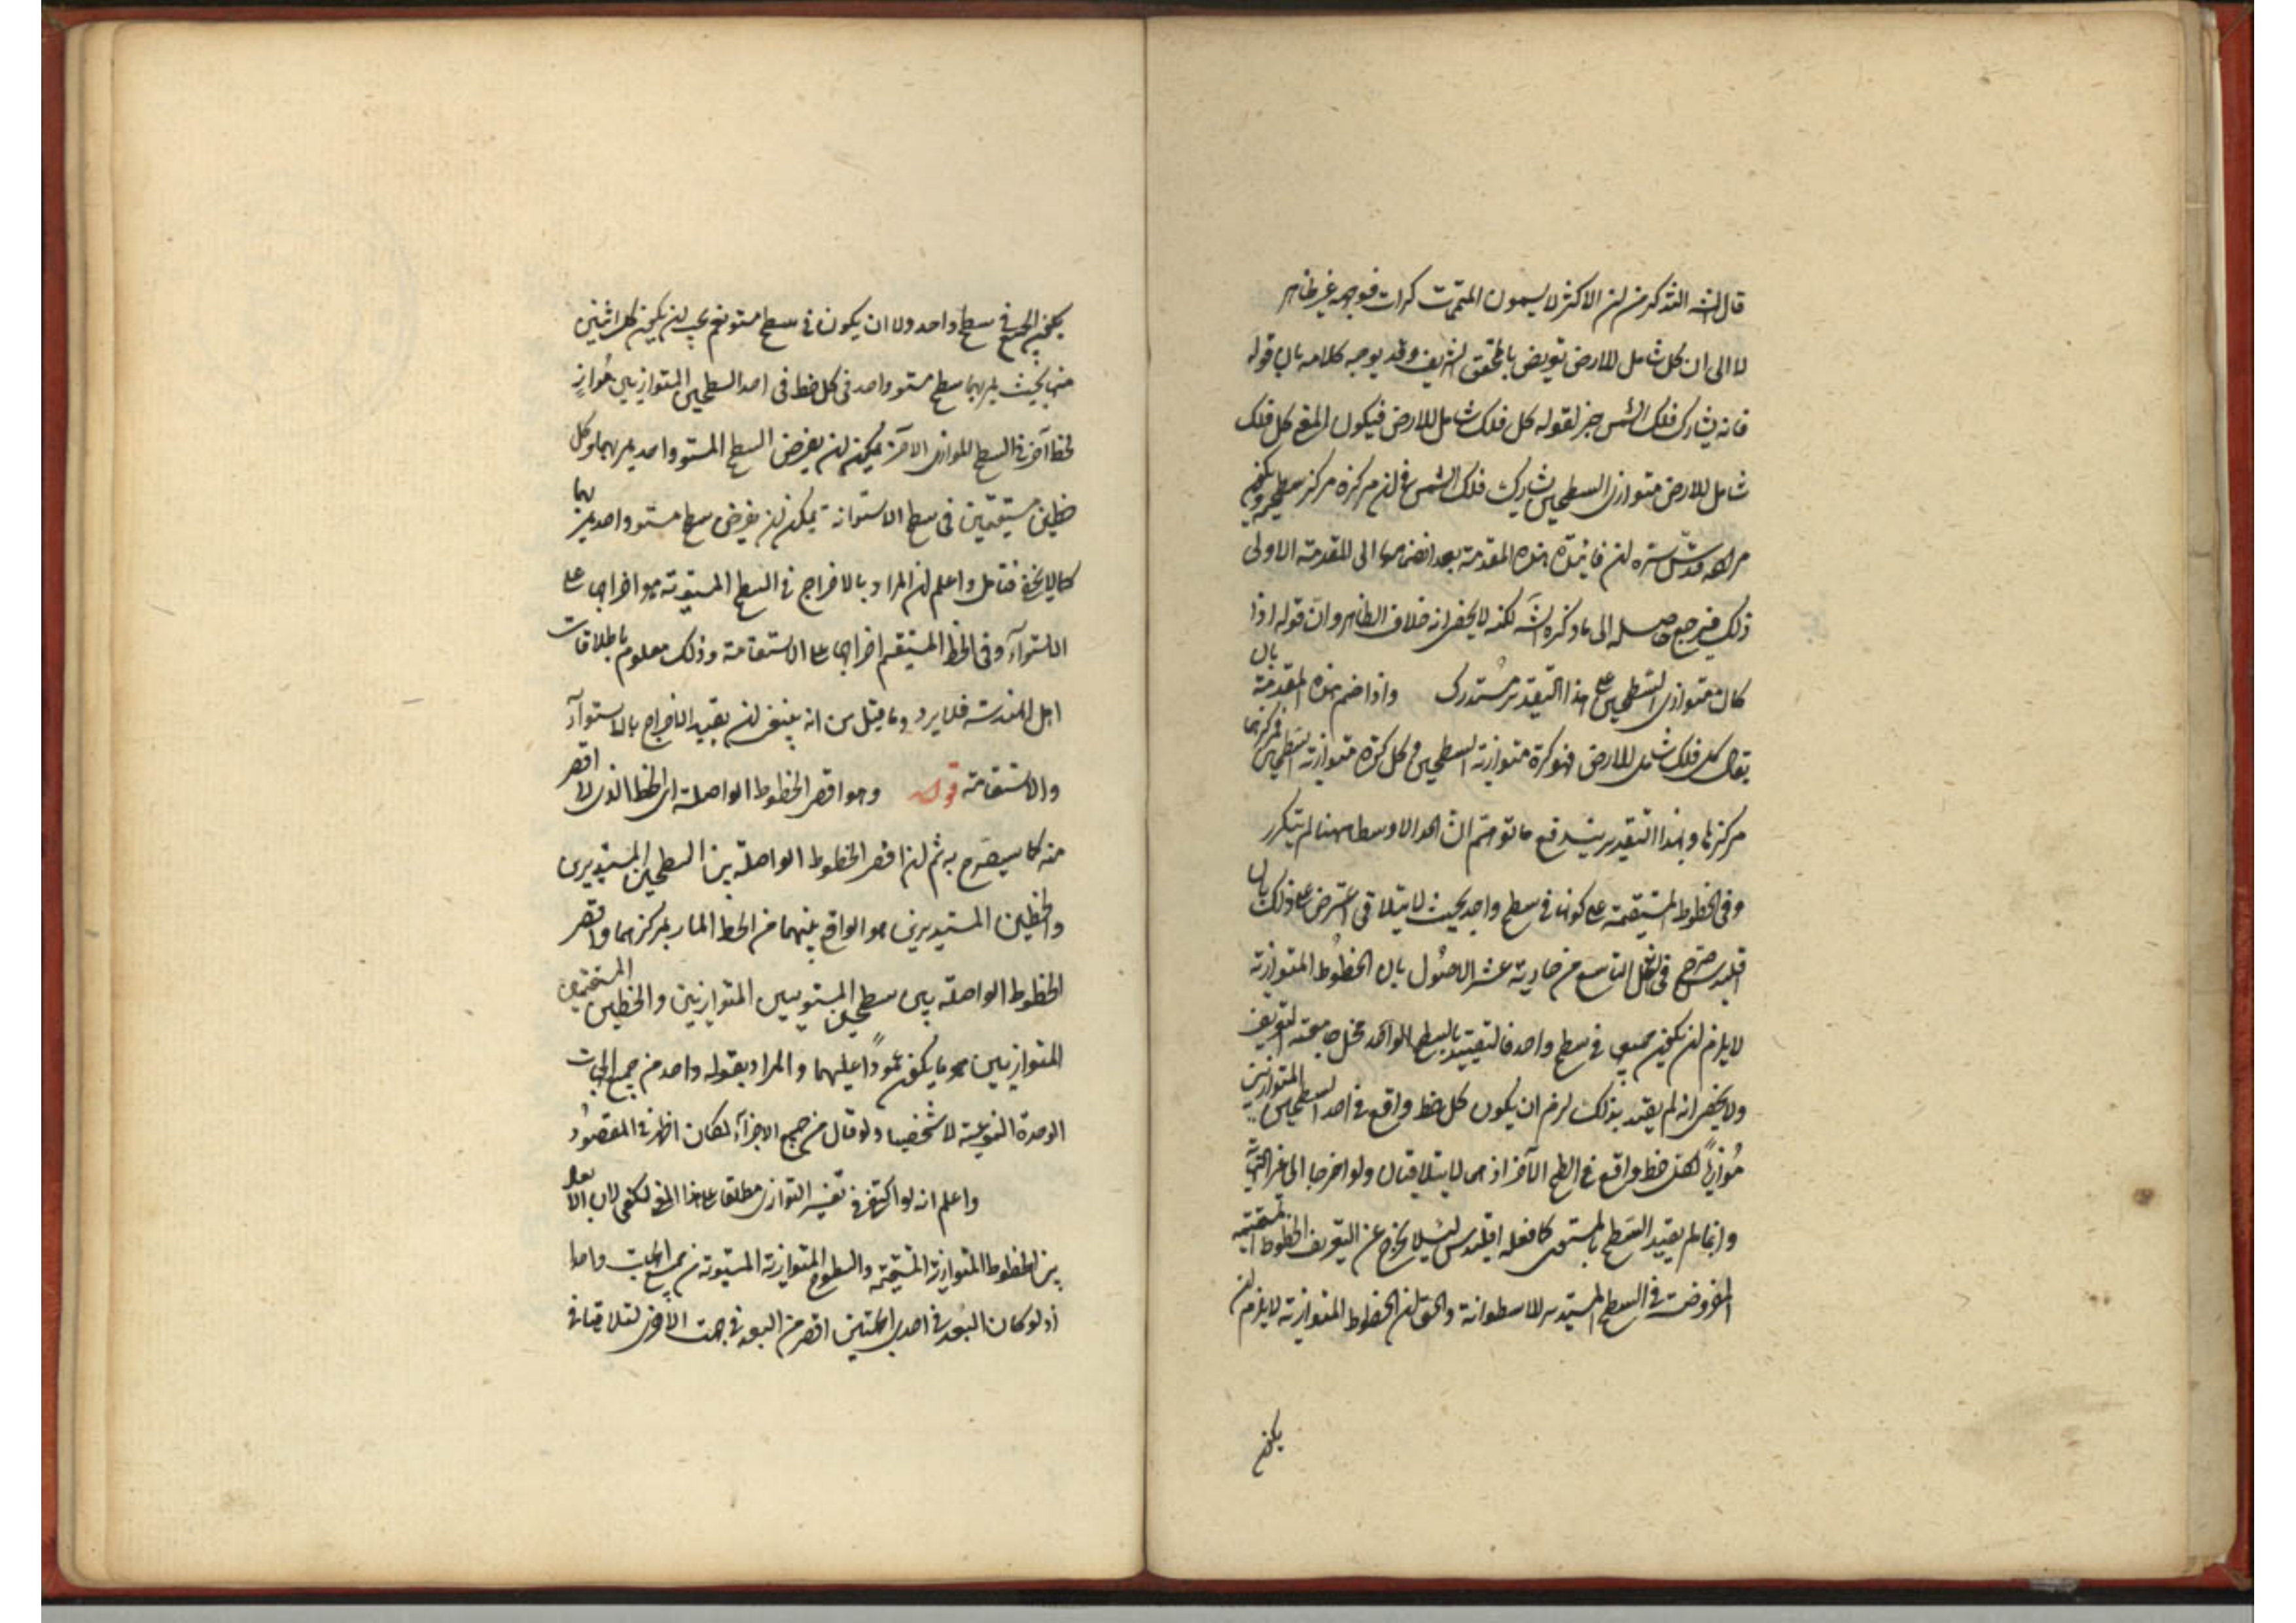 قال الشه التذكرة من ان الاكثر لا يسمون المتممات كرات فوجهه غير ظاهر
لا الى ان كل شامل للارض تعريض بالمحقق الشريف وقد يوجه كلامه بان قوله
فانه يشارك فلك الشمس خبر لقوله كل فلك شامل للارض فيكون المعنى كل فلك
شامل للارض متوازى السطحين يشارك فلك الشمس فى ان مركزه مركز سطحيه
قدس سره ان فائدة هذه المقدمة بعد انضمامها الى المقدمة الاولى
ذلك فيرجع حاصله الى ما ذكره الشه لكنه لا يخفى انه خلاف الظاهر وان قوله اذا
كان متوازى السطحين على هذا التقدير مستدرك واذا ضم هذه المقدمة بان
يقال كل فلك شامل للارض فهو كرة متوازية السطحين وكل كرة متوازية السطحين فمركزها
مركزها وبهذا التقدير يندفع ما توهم ان الحد الاوسط ههنا لم يتكرر
وفى الخطوط المستقيمة على كونها فى سطح واحد بحيث لا يتلاقى اعترض على ذلك بان
اقليدس صرح فى الشكل التاسع من حادية عشر الاصول بان الخطوط المتوازية
لا يلزم ان يكون جميعها فى سطح واحد فالتقييد بالسطح الواحد مخل بجامعية التعريف
ولا يخفى انه لو لم يقيد بذلك لزم ان يكون كل خط واقع فى احد السطحين المتوازيين
موازيا لكل خط واقع فى السطح الآخر اذ هما لا يتلاقيان ولو اخرجا الى غير النهاية
وانما لم يقيد السطح بالمستوى كما فعله اقليدس لئلا يخرج عن التعريف الخطوط المستقيمة
المفروضة فى السطح المستدير للاسطوانة والحق ان الخطوط المتوازية لا يلزم ان
يكون
يكون الجميع فى سطح واحد ولا ان يكون فى سطح مستو نعم يجب ان يكون كل اثنين
منها بحيث يمر بهما سطح مستو واحد فى كل خط فى احد السطحين المتوازيين مواز
لخط آخر فى السطح الموازى الآخر يمكن ان يفرض السطح المستو واحد يمر بهما وكل
خطين مستقيمين فى سطح الاستوانة يمكن ان يفرض سطح مستو واحد يمر بهما
كما لا يخفى فتامل واعلم ان المراد بالاخراج فى السطح المستوية هو اخراجها على
الاستواء وفى الخط المستقيم اخراجها على الاستقامة وذلك معلوم باطلاقات
اهل الهندسة فلا يرد وما قيل من انه ينبغى ان يقيد الاخراج بالاستواء
والاستقامة قوله وهو اقصر الخطوط الواصلة اى الخط الذى لا اقصر
منه كما سيصرح به ثم ان اقصر الخطوط الواصلة بين السطحين المستديرين
والخطين المستديرين هو الواقع بينهما من الخط المار بمركزهما واقصر
الخطوط الواصلة بين سطحين المستويين المتوازيين والخطين المستقيمين
المتوازيين هو ما يكون عمودا عليهما والمراد بقوله واحد من جميع الجهات
الوحدة النوعية لا شخصيا ولو قال من جميع الاجزاء لكان اظهر فى المقصود
واعلم انه لو اكتفى فى تفسير التوازى مطلقا على هذا المعنى لكفى لان الابعاد
بين الخطوط المتوازية المستقيمة والسطوح المتوازية المستوية من جميع الجهات واحد
اذ لو كان البعد فى احدى الجهتين اقصر من البعد فى جهت الاخرى لتلاقيا فى